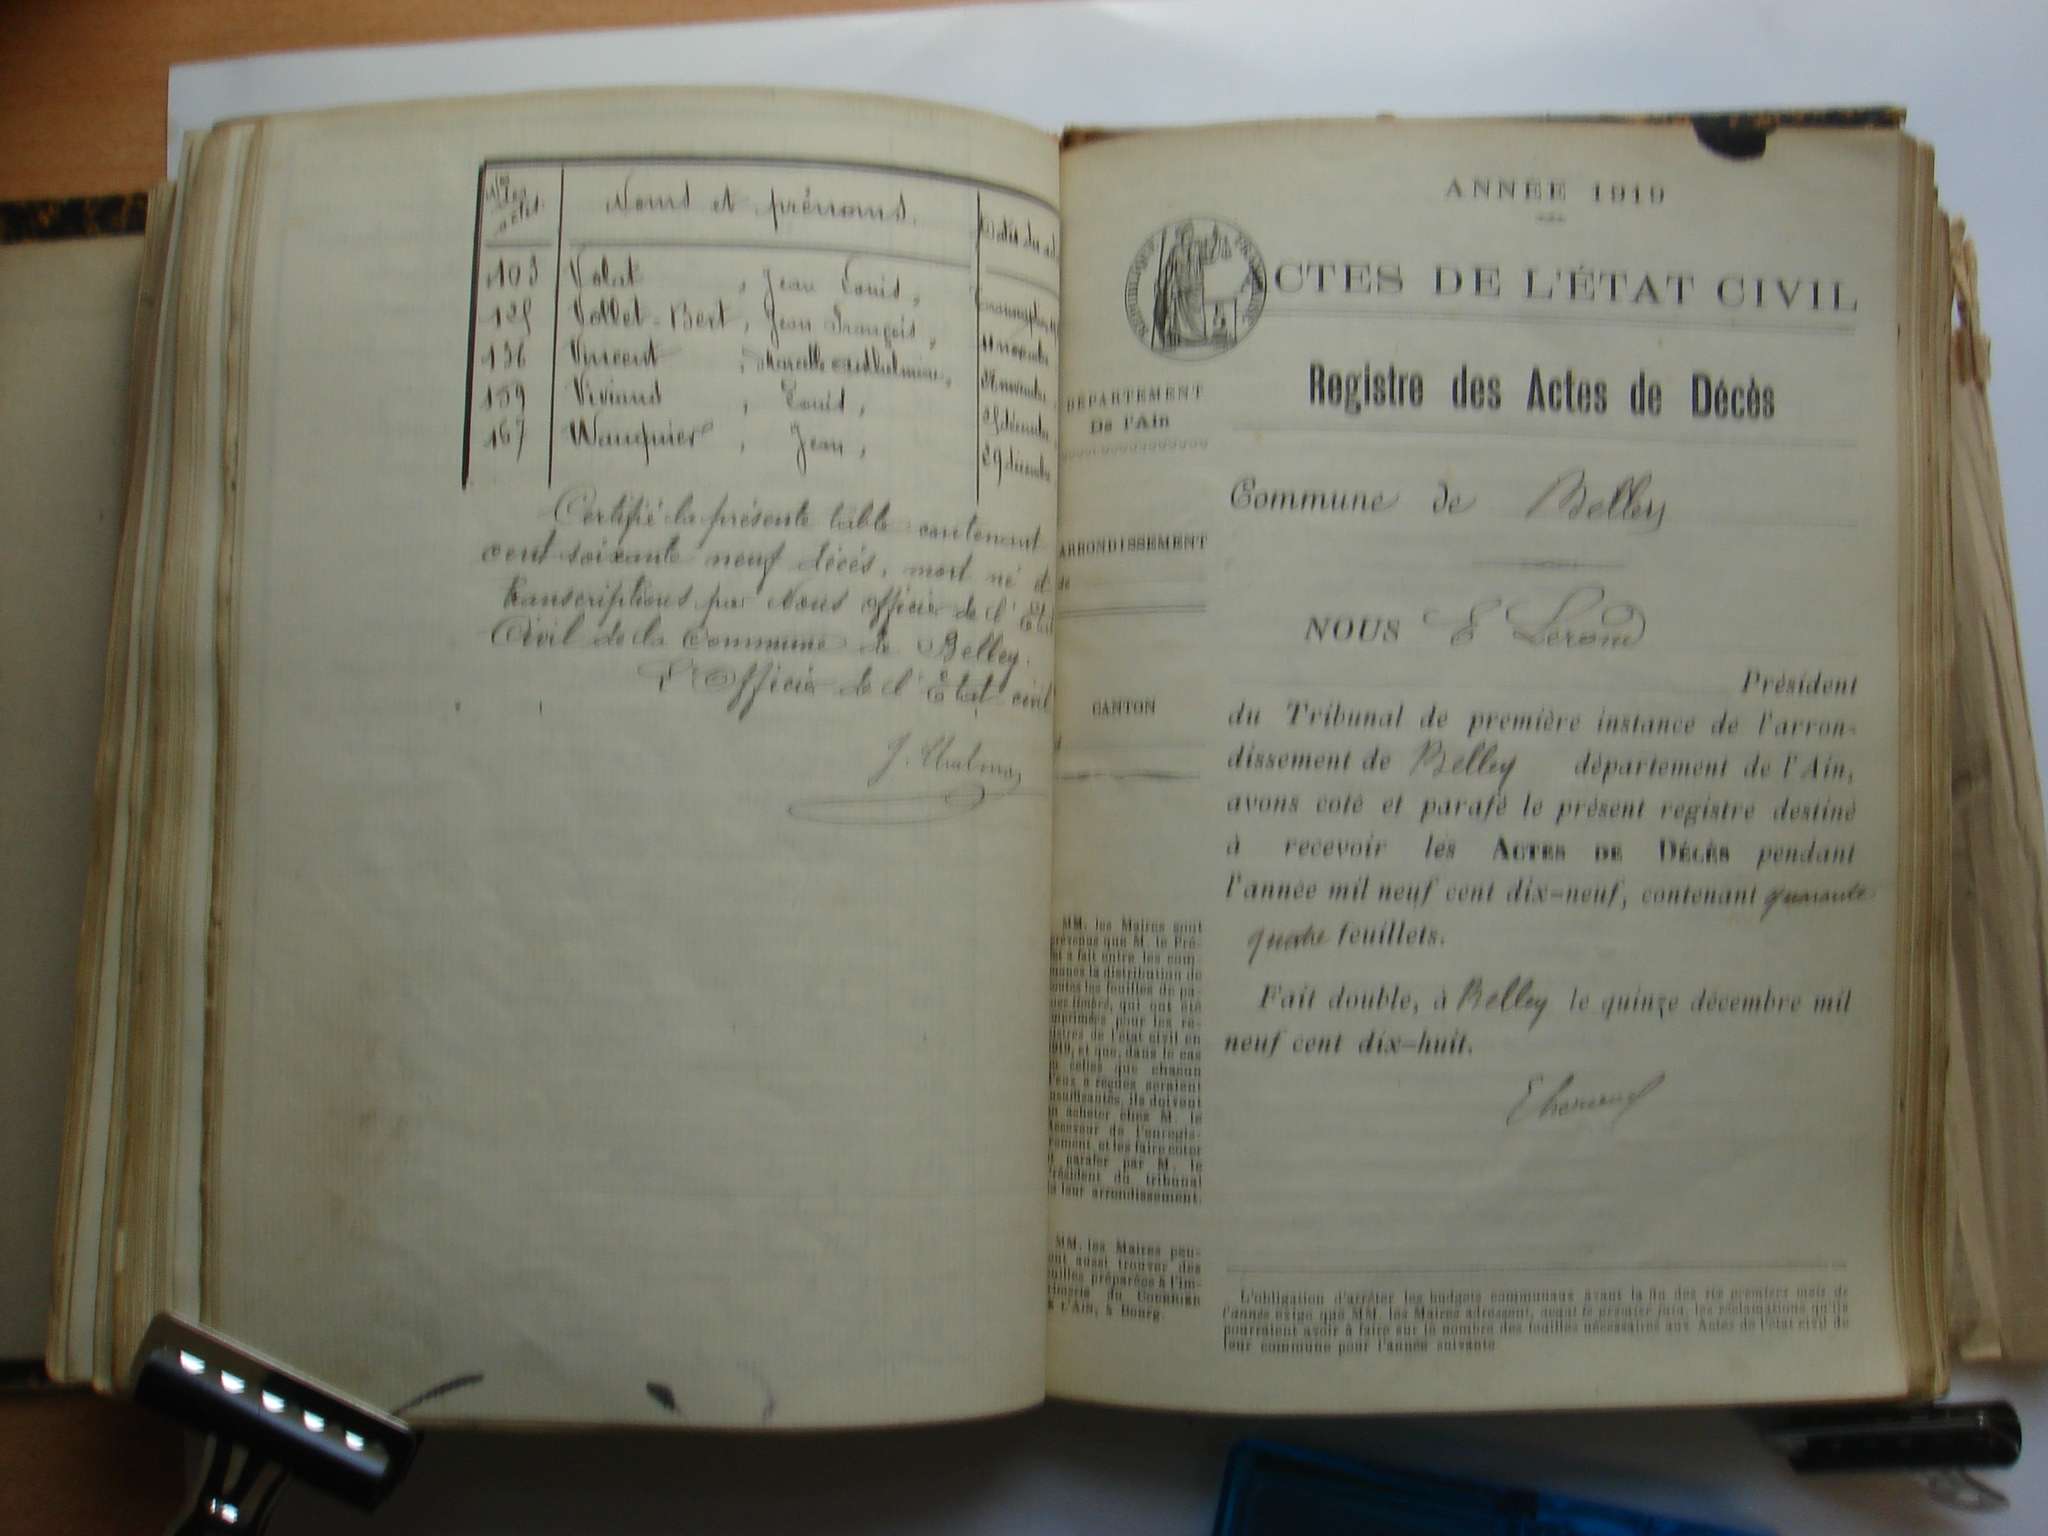 Nos des actes
Noms et prénoms.
Dates des ac
103 Volat, Jean Louis,
125 Vollet-Bert, Jean François, 11 novembre
136 Vincent, Marcelle
159 Viviand, Louis, décembre
167 Wauquier, Jean, 29 décembre
Certifié la présente table contenant
cent soixante neuf décès, mort né et
transcriptions par Nous officier de l'Etat
Civil de la commune de Belley.
L'Officier de l'Etat civil
ANNÉE 1919
RÉPUBLIQUE FRANÇAISE
ACTES DE L'ÉTAT CIVIL
Registre des Actes de Décès
DÉPARTEMENT
De l'Ain
Commune de Belley
ARRONDISSEMENT
de
NOUS E Lerond
Président
CANTON
du Tribunal de première instance de l'arron-
dissement de Belley département de l'Ain,
avons coté et parafé le présent registre destiné
à recevoir les ACTES DE DÉCÈS pendant
l'année mil neuf cent dix-neuf, contenant quarante
quatre feuillets.
Fait double, à Belley le quinze décembre mil
neuf cent dix-huit.
MM. les Maires sont
prévenus que M. le Pré-
fet a fait entre les com-
munes la distribution de
toutes les feuilles de pa-
pier timbré, qui ont été
imprimées pour les re-
gistres de l'état civil en
1919, et que, dans le cas
où celles que chacun
d'eux a reçues seraient
insuffisantes, ils doivent
en acheter chez M. le
Receveur de l'enregis-
trement, et les faire coter
et parafer par M. le
Président du tribunal
de leur arrondissement.
MM. les Maires peu-
vent aussi trouver des
feuilles préparées à l'im-
primerie du COURRIER
DE L'AIN, à Bourg.
L'obligation d'arrêter les budgets communaux avant la fin des six premiers mois de
l'année exige que MM. les Maires adressent, avant le premier juin, les réclamations qu'ils
pourraient avoir à faire sur le nombre des feuilles nécessaires aux Actes de l'état civil de
leur commune pour l'année suivante